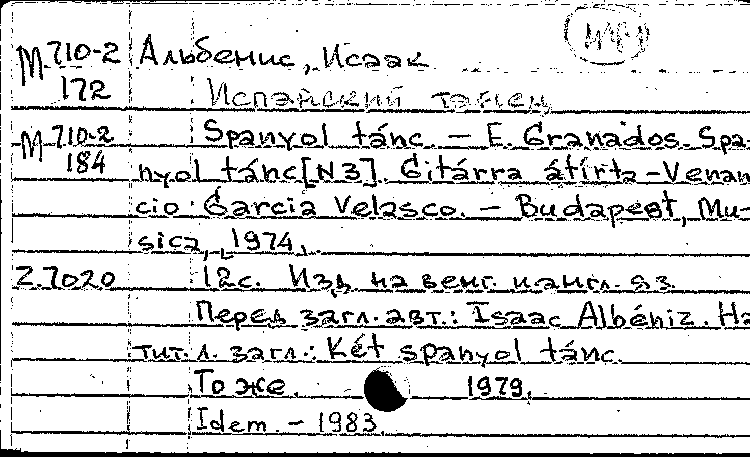 М 710-2 Альбенис, Исаак
172 Испанский танец
М 710-2 Spanyol tánc. – E. Granados. Spa-
184 nyol tánc [N3]. Gitárra átírta – Venan
cio Garcia Velasco. – Budapest, Mu-
sica, 1974.
Z.7020 12с. Изд. на венг. и англ. яз.
Перед загл. авт.: Isaac Albéniz. На
тит. л. загл.: Két spanyol tánc.
То же. 1979.
Idem. – 1983.